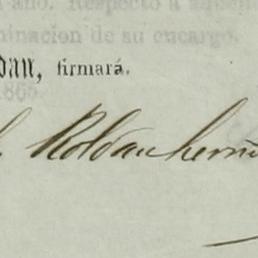 año. Respecto a
minacion de su encargo.
dan, firmará.
1865.
Roldan hern